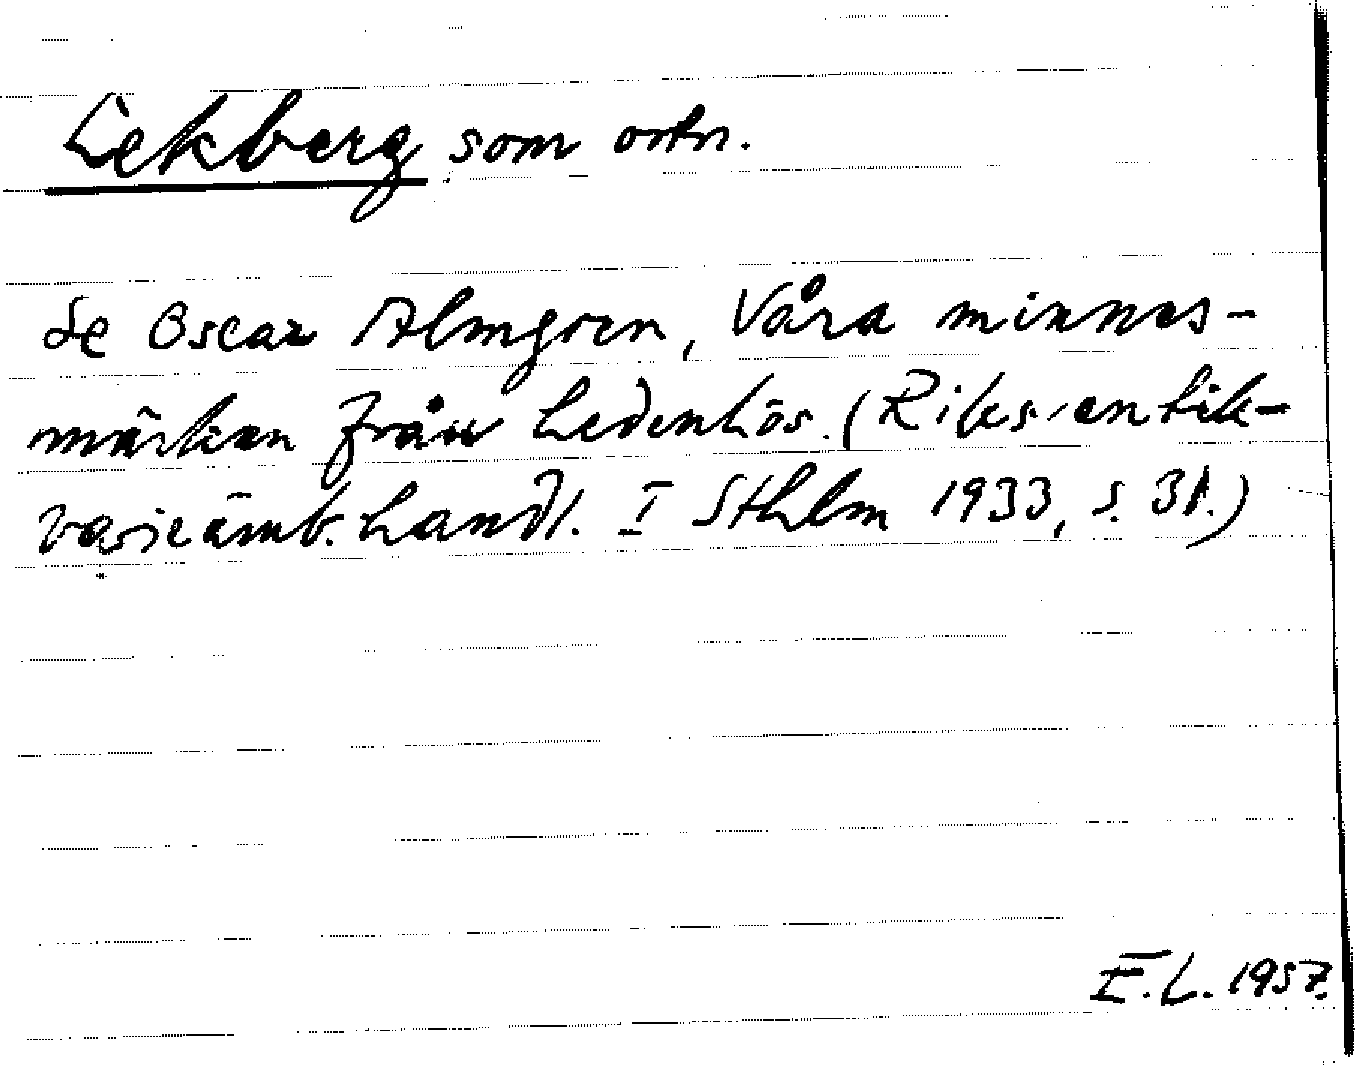 Lekberg som ortn.
Se Oscar Almgren, Våra minnes-
märken från hedenhös. (Riksantik-
varieämb. handl. I Sthlm 1933, s. 31.)
E.L. 1957.